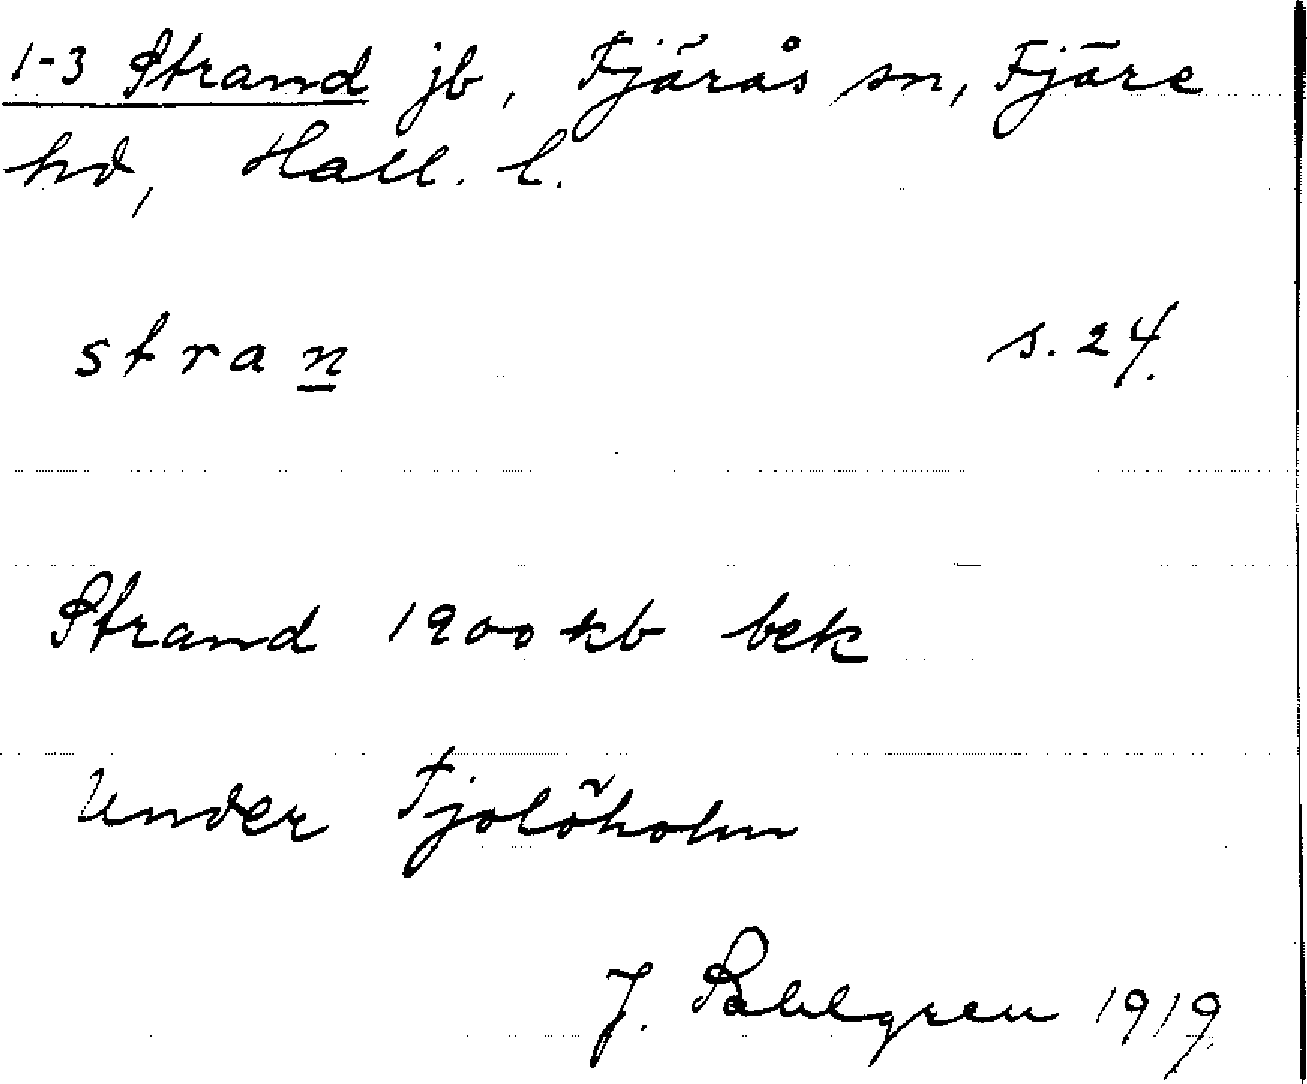 1-3 Strand jb, Fjärås sn, Fjäre
hd, Hall. l.
stran s. 24.
Strand 1900 kb bek
Under Fjolöholm
J. Sahlgren 1919